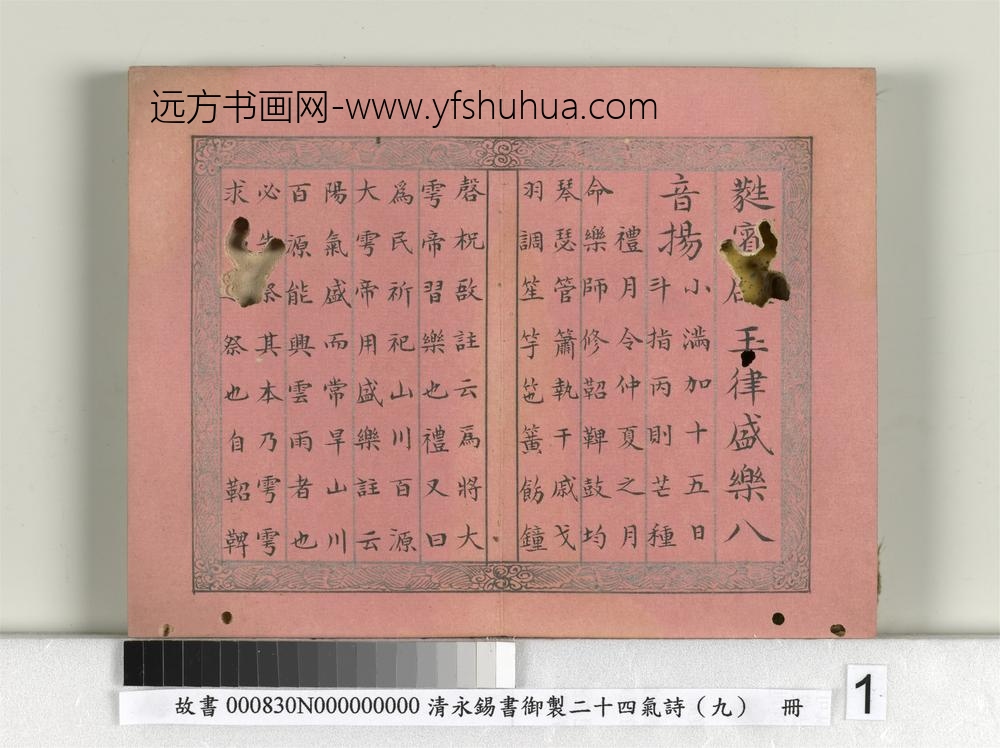 远方书画网-www.yfshuhua.com
蕤賓玉律盛樂八
音揚
小滿加十五日
斗指丙則芒種
禮月令仲夏之月
命樂師修鞀鞞鼓均
琴瑟管簫執干戚戈
羽調笙竽竾簧飭鐘
磬柷敔註云爲將大
雩帝習樂也禮又曰
爲民祈祀山川百源
大雩帝用盛樂註云
陽氣盛而常旱山川
百源能興雲雨者也
必先祭其本乃雩雩
求祭也自鞀鞞
故書 000830N000000000 清永錫書御製二十四氣詩（九） 冊
1